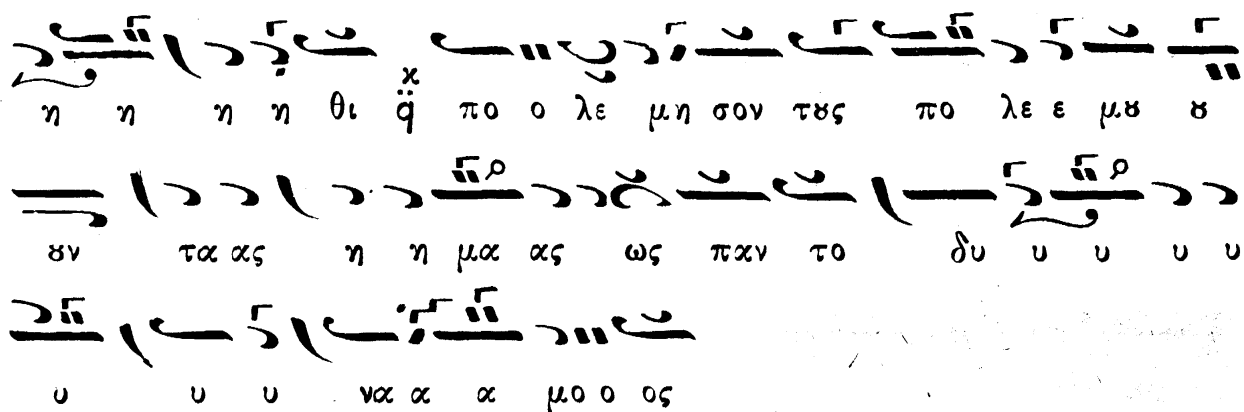 η η η η θι ϗ̈ q̈ πο ο λε μη σον τȣς πο λε ε μȣ ȣ
ȣν τα ας η η μα ας ως παν το δυ υ υ υ υ
υ υ υ να α α μο ο ος